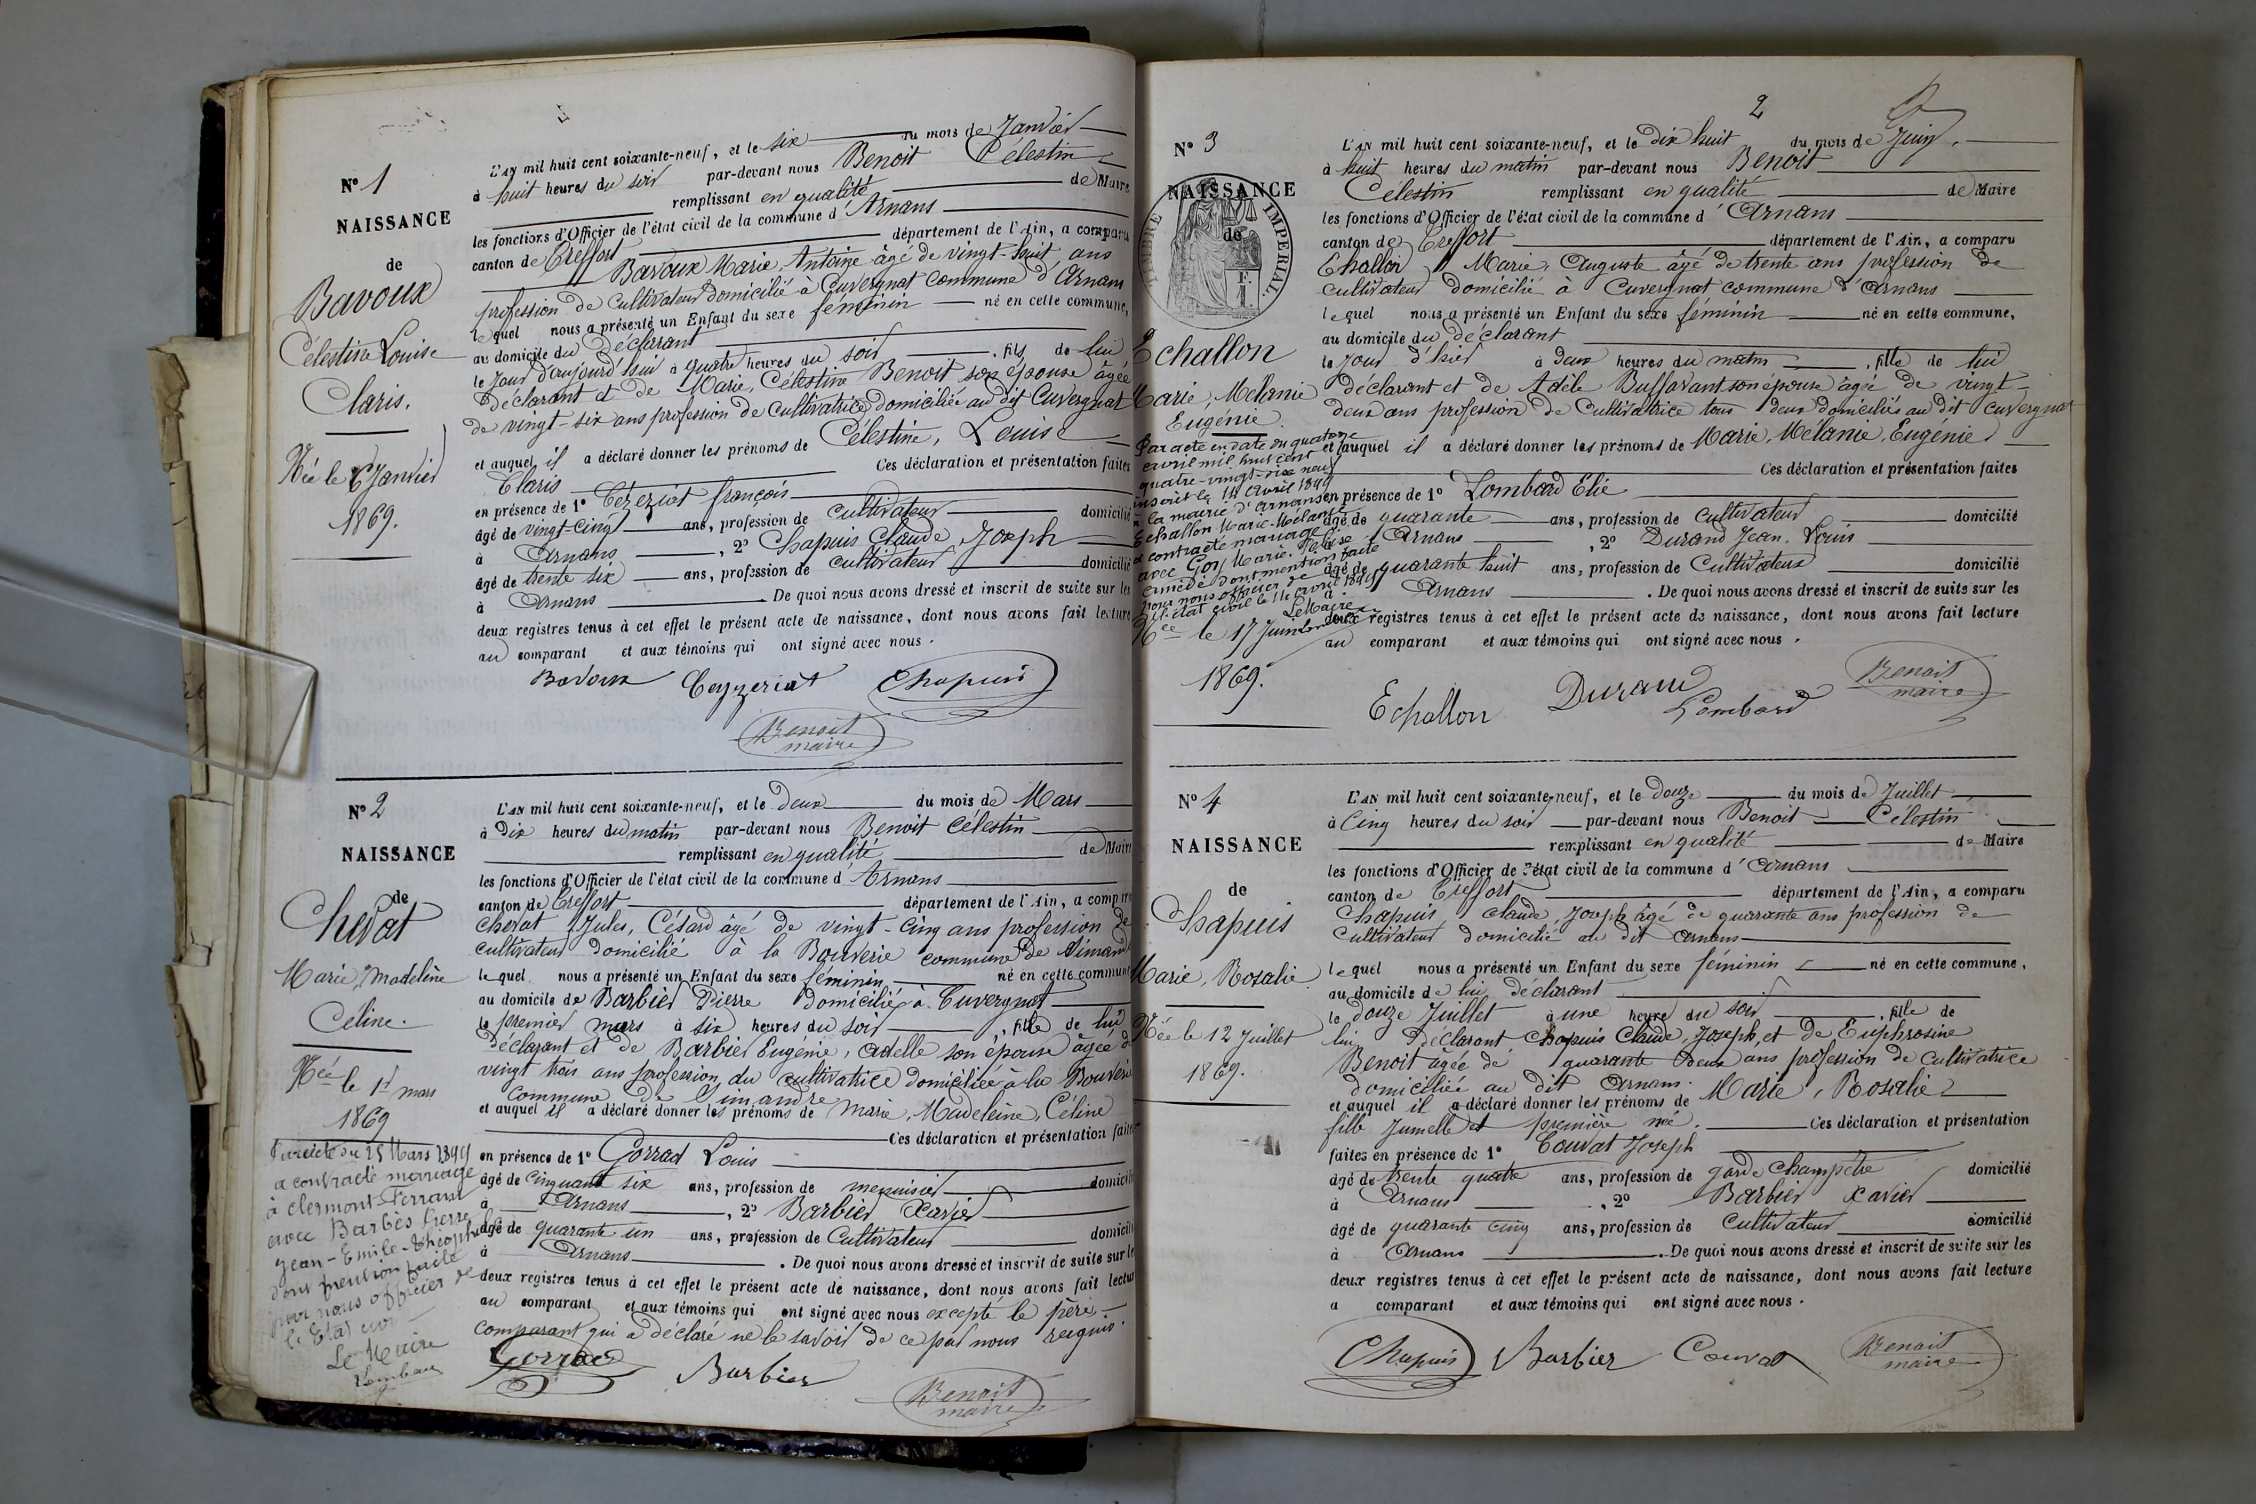 N° 1
NAISSANCE
de
Bavoux
Célestine Louise
Claris.
Née le 6 Janvier
1869.
L'AN mil huit cent soixante-neuf, et le six du mois de Janvier
à huit heures du soir par-devant nous Benoit Célestin
remplissant en qualité de Maire
les fonctions d'Officier de l'état civil de la commune d'Arnans
canton de Treffort département de l'Ain, a comparu
Bavoux Marie, Antoine âgé de vingt-huit ans
profession de cultivateur domicilié à Cuvergnat commune d'Arnans
lequel nous a présenté un Enfant du sexe féminin né en cette commune,
au domicile du Déclarant
le jour d'aujourd'hui à quatre heures du soir, fils de lui
déclarant et de Marie, Célestine Benoit son épouse âgée
de vingt-six ans profession de cultivatrice domiciliée au dit Cuvergnat
et auquel il a déclaré donner les prénoms de Célestine, Louise
Claris Ces déclaration et présentation faites
en présence de 1° Cézeziat françois
âgé de vingt-cinq ans, profession de cultivateur domicilié
à Arnans, 2° Chapuis Claude Joseph
âgé de trente six ans, profession de cultivateur domicilié
à Arnans. De quoi nous avons dressé et inscrit de suite sur les
deux registres tenus à cet effet le présent acte de naissance, dont nous avons fait lecture
au comparant et aux témoins qui ont signé avec nous.
Bavoux Ceyzeriat Chapuis
Benoit
maire
N° 2
NAISSANCE
de
Chevat
Marie, Madeleine
Celine.
Née le 1er mars
1869
Par acte du 25 Mars 1899
a contracté mariage
à Clermont-Ferrand
avec Barbès Pierre
Jean-Emile-Théophile
dont mention faite
par nous officier de
l'Etat civil
Le Maire
L'AN mil huit cent soixante-neuf, et le Deux du mois de Mars
à Dix heures du matin par-devant nous Benoit Célestin
remplissant en qualité de Maire
les fonctions d'Officier de l'état civil de la commune d'Arnans
canton de Treffort département de l'Ain, a comparu
Chevat Jules, Césard âgé de vingt-cinq ans profession de
cultivateur domicilié à la Bouverie commune de Simandre
lequel nous a présenté un Enfant du sexe féminin né en cette commune
au domicile de Barbier Pierre domicilié à Cuvergnat
le premier mars à six heures du soir, fille de lui
déclarant et de Barbier Eugénie, Adelle son épouse âgée de
vingt trois ans profession du cultivatrice domiciliée à la Bouverie
Commune de Simandre
et auquel il a déclaré donner les prénoms de Marie, Madeleine, Céline
Ces déclaration et présentation faites
en présence de 1° Gorrad Louis
âgé de cinquante six ans, profession de menuisier domicilié
à Arnans, 2° Barbier Xavier
âgé de quarante un ans, profession de Cultivateur domicilié
à Arnans. De quoi nous avons dressé et inscrit de suite sur les
deux registres tenus à cet effet le présent acte de naissance, dont nous avons fait lecture
au comparant et aux témoins qui ont signé avec nous excepté le père
comparant qui a déclaré ne le savoir de ce par nous requis.
Gorrad Barbier
Benoit
maire
2
N° 3
NAISSANCE
de
TIMBRE IMPERIAL
Echallon
Marie, Mélanie
Eugénie.
Par acte en date du quatorze
avril mil huit cent
quatre-vingt-dix neuf
inscrit le 14 Avril 1899
à la mairie d'Arnans
Echallon Marie-Mélanie
a contracté mariage
avec Goy Marie-Félix
dont mention faite
par nous officier de
l'état civil le 14 avril 1899
Le Maire
Née le 17 Juin
1869.
L'AN mil huit cent soixante-neuf, et le Dix huit du mois de Juin.
à huit heures du matin par-devant nous Benoit
Célestin remplissant en qualité de Maire
les fonctions d'Officier de l'état civil de la commune d'Arnans
canton de Treffort département de l'Ain, a comparu
Echallon Marie, Auguste âgé de trente ans profession de
cultivateur domicilié à Cuvergnat commune d'Arnans
lequel nous a présenté un Enfant du sexe féminin né en cette commune,
au domicile du déclarant
le jour d'hier à deux heures du matin, fille de lui
déclarant et de Adèle Buffavant son épouse âgée de vingt-
deux ans profession de Cultivatrice tous deux domiciliés au dit Cuvergnat
et auquel il a déclaré donner les prénoms de Marie, Mélanie, Eugénie
Ces déclaration et présentation faites
en présence de 1° Lombard Elie
âgé de quarante ans, profession de cultivateur domicilié
à Arnans, 2° Durand Jean-Louis
âgé de quarante huit ans, profession de Cultivateur domicilié
à Arnans. De quoi nous avons dressé et inscrit de suite sur les
deux registres tenus à cet effet le présent acte de naissance, dont nous avons fait lecture
au comparant et aux témoins qui ont signé avec nous.
Echallon Durand Lombard
Benoit
maire
N° 4
NAISSANCE
de
Chapuis
Marie, Rosalie
Née le 12 Juillet
1869.
L'AN mil huit cent soixante-neuf, et le douze du mois de Juillet
à Cinq heures du soir par-devant nous Benoit Célestin
remplissant en qualité de Maire
les fonctions d'Officier de l'état civil de la commune d'Arnans
canton de Treffort département de l'Ain, a comparu
Chapuis, Claude, Joseph âgé de quarante ans profession de
Cultivateur domicilié au dit Arnans
lequel nous a présenté un Enfant du sexe féminin né en cette commune,
au domicile de lui déclarant
le douze Juillet à une heure du soir, fille de
lui déclarant Chapuis Claude, Joseph, et de Euphrosine
Benoit âgée de quarante deux ans profession de cultivatrice
domiciliée au dit Arnans.
et auquel il a déclaré donner les prénoms de Marie, Rosalie
fille Jumelle et première née. Ces déclaration et présentation
faites en présence de 1° Couvat Joseph
âgé de trente quatre ans, profession de garde Champêtre domicilié
à Arnans, 2° Barbier Xavier
âgé de quarante cinq ans, profession de Cultivateur domicilié
à Arnans. De quoi nous avons dressé et inscrit de suite sur les
deux registres tenus à cet effet le présent acte de naissance, dont nous avons fait lecture
a comparant et aux témoins qui ont signé avec nous.
Chapuis Barbier Couvat
Benoit
maire